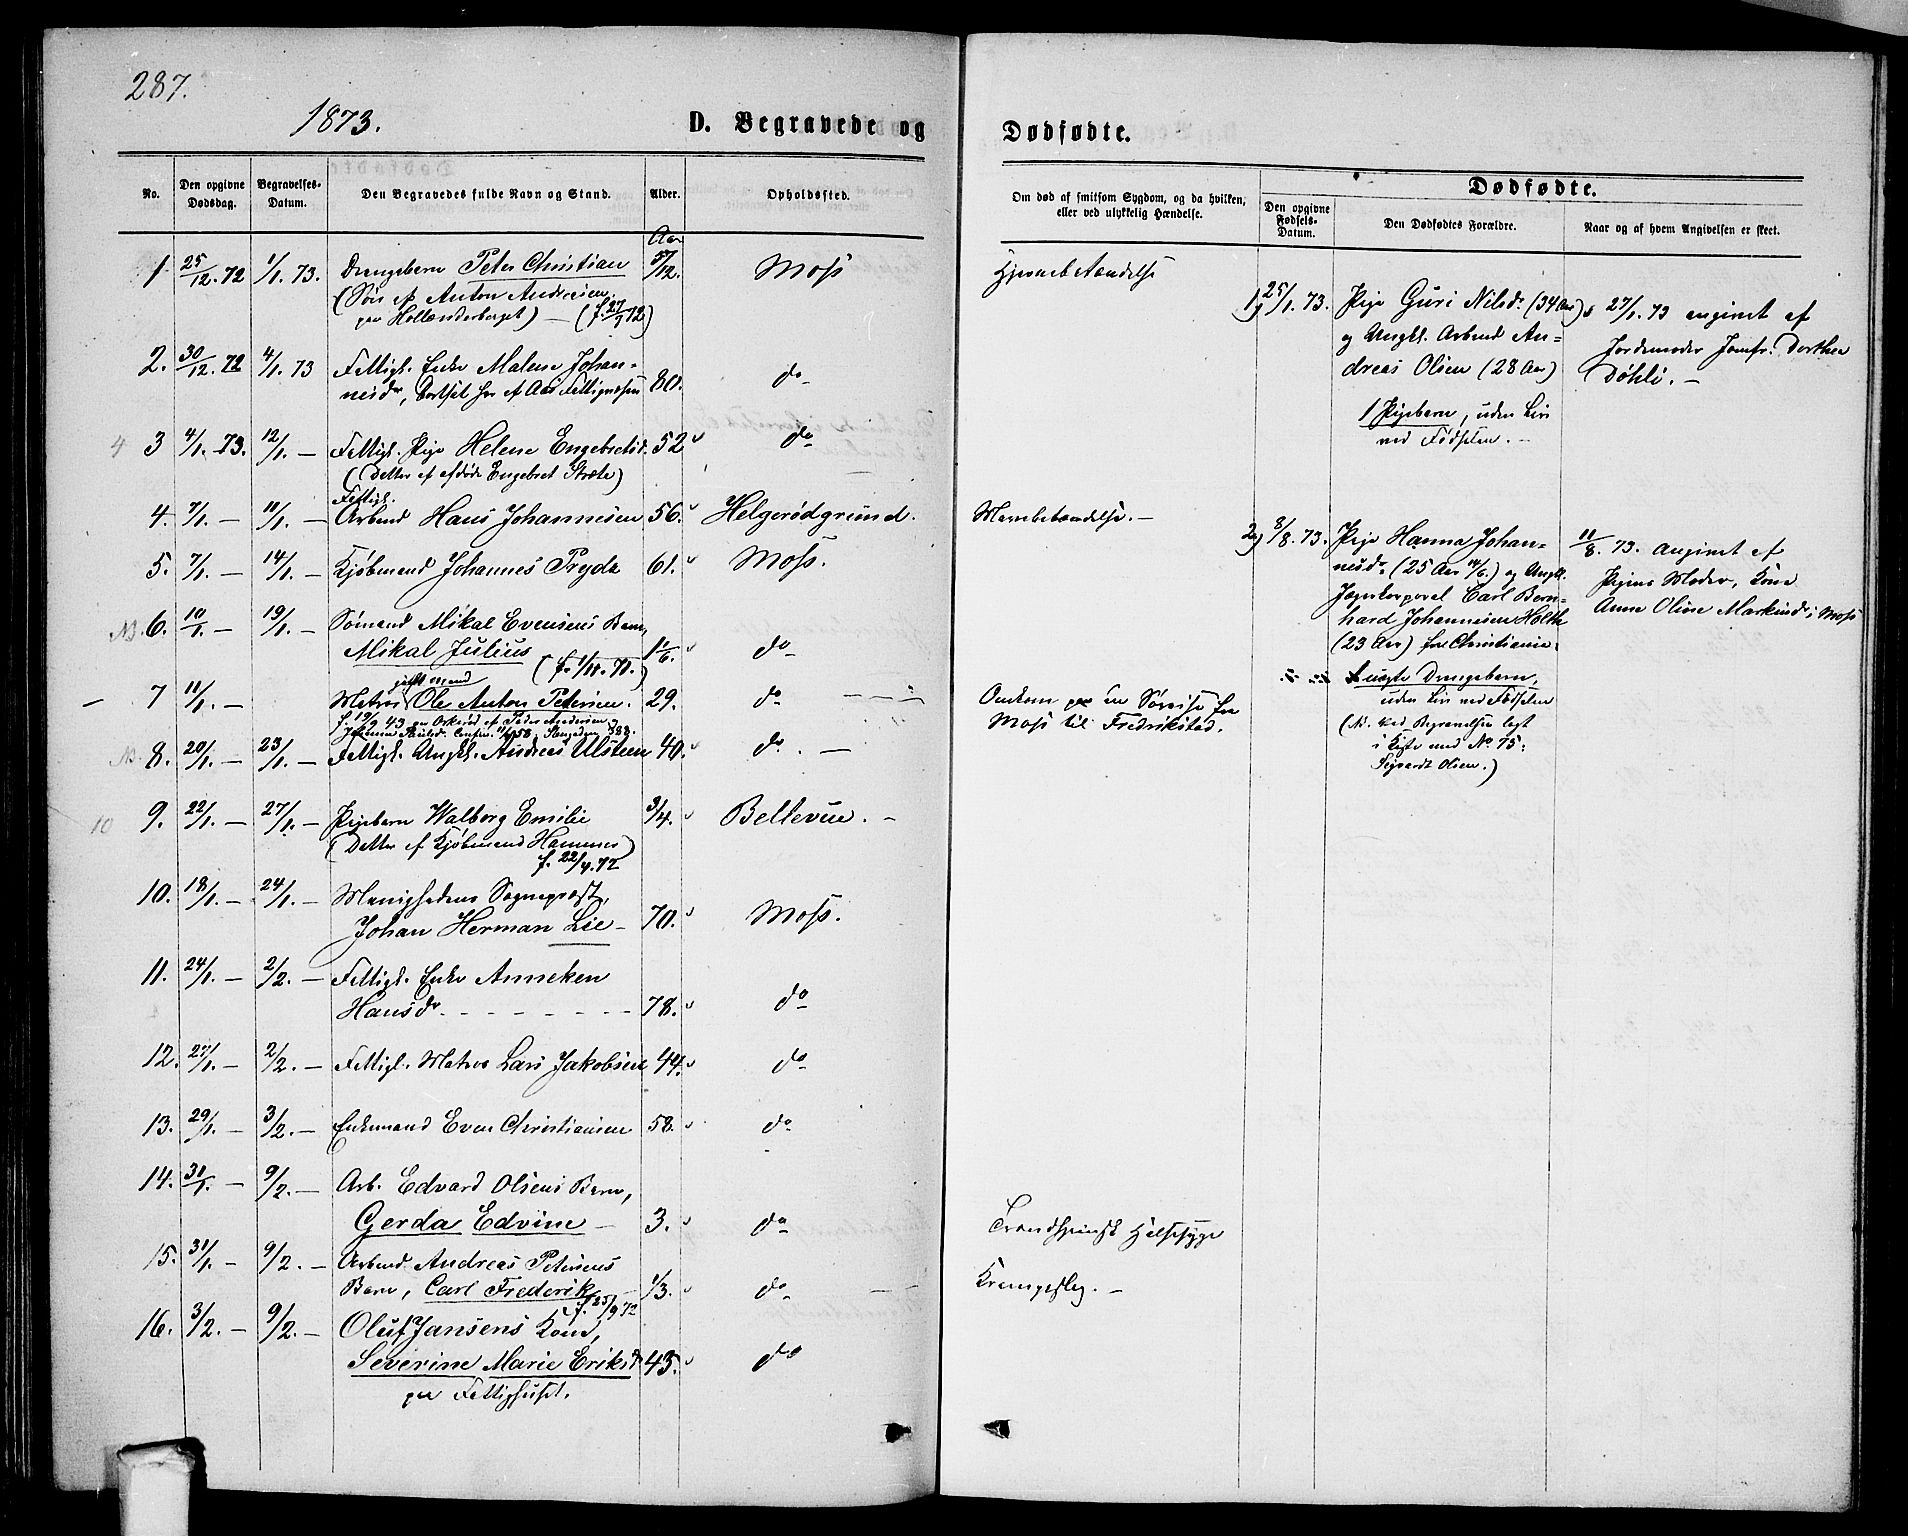 287.
1873.
D. Begravede og
Dødfødte.
No.
Den opgivne Dødsdag.
Begravelses-Datum.
Den Begravedes fulde Navn og Stand.
Alder.
Opholdssted.
Om død af smitsom Sygdom, og da hvilken,
eller ved ulykkelig Hændelse.
Dødfødte.
Den opgivne Fødsels-Datum.
Den Dødfødtes Forældre.
Naar og af hvem Angivelsen er skeet.
Aar
1 25/12.72 1/1.73. Drengebarn Peter Christian 5/12. Moss Hjernebetændelse
(Søn af Anton Andersen
paa Hollænderberget) — (f. 27/7 72)
2. 30/12.72 4/1.73 Fattigl. Enke Malene Johan-
nesdr, Bortsat for af Aas Fattigvæsen 80. do
4 3 4/1.73. 12/1. — Fattigl. Pige Helene Engebretsd. 52 do
(Datter af afdøde Engebret Stræte)
Fattigl.
4. 7/1. — 11/1. — Arbmd Hans Johannesen 56. Helgerødgrund. Mavebetændelse. —
5. 7/1. — 14/1. — Kjøbmand Johannes Prydz 61. Moss.
NB. 6. 10/1. — 19/1. — Sømand Mikal Evensens Barn,
Mikal Julius (f. 1/11.71.) 1 1/6. do
gift Mand
7 11/1. — Matros Ole Anton Petersen. 29. do — — — Omkom paa en Søreise fra
Moss til Fredrikstad.
f. 19/9 43 paa Orkerød af Peder Andersen og
NB. 8. 20/1. — 23/1. — Fattigl. Ungkl. Andreas Ulsteen 40. do. —
10 9. 22/1. — 27/1. — Pigebarn Walborg Emilie 3/4. Bellevue. —
(Datter af Kjøbmand Hammer)
f. 22/4.72
10. 18/1. — 24/1. — Menighedens Sognepræst,
Johan Herman Lie — 70. Moss.
11. 24/1. — 2/2. — Fattigl. Enke Anneken
Hansdr - - - - - - - - 78. do
12. 27/1. — 2/2. — Fattigl. Matros Lars Jakobsen 44. do
13. 29/1. — 3/2. — Enkemand Even Christiansen 58. do
14. 31/1. — 9/2. — Arb. Edvard Olsens Barn,
Gerda Edvine — 3. do Trondhjemsk Halssyge
15. 31/1. — 9/2. — Arbmd Andreas Petersens
Barn, Carl Frederik — 1/3. do Krampeslag. —
f. 25/9 72
16. 3/2. — 9/2. — Oluf Jansens Kone,
Severine Marie Eriksd 43. do
paa Fattighuset.
1) 25/1.73. Pige Guri Nilsdr (34 Aar) 27/1.73 angivet af
og Ungkl. Arbmd An- Jordemoder Jomfr. Dorthea
dreas Olsen (28 Aar) Døhli. —
1 Pigebarn, uden Liv
ved Fødselen. —
2) 8/8.73. Pige Hanna Johan- 11/8.73. angivet af
nesdr (25 Aar) og Ungkl. Pigens Moder, Kone
Jægerkorporal Carl Bern- Anne Olsen Markusdr i Moss
hard Johannesen Holth
(23 Aar) fra Christiania.
uægte Drengebarn,
uden Liv ved Fødselen
(NB. ved Begravelsen lagt
i Kiste med No 75:
Sigvardt Olsen.)